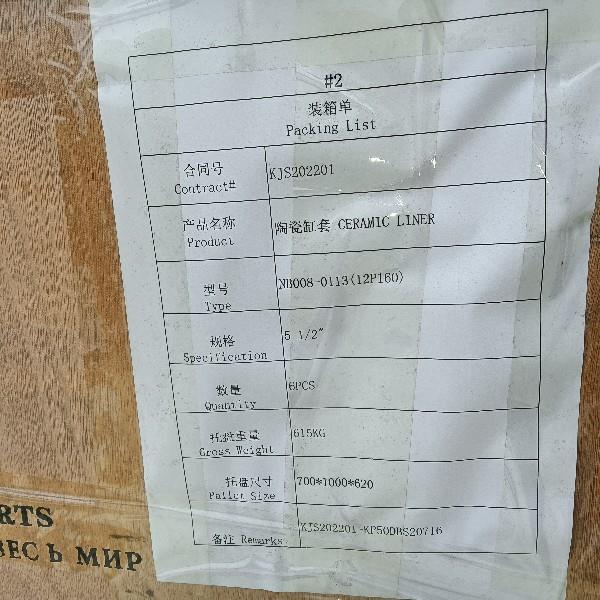 #2
装箱单
Packing List
合同号
Contract#
KJS202201
产品名称
Product
陶瓷缸套 CERAMIC LINER
型号
Type
NB008-0113(12P160)
规格
Specification
5 1/2"
数量
Quantity
6PCS
托盘重量
Gross Weight
615KG
托盘尺寸
Pallet Size
700*1000*620
备注 Remarks
KJS202201-KP50DBS20716
RTS
ВЕСЬ МИР